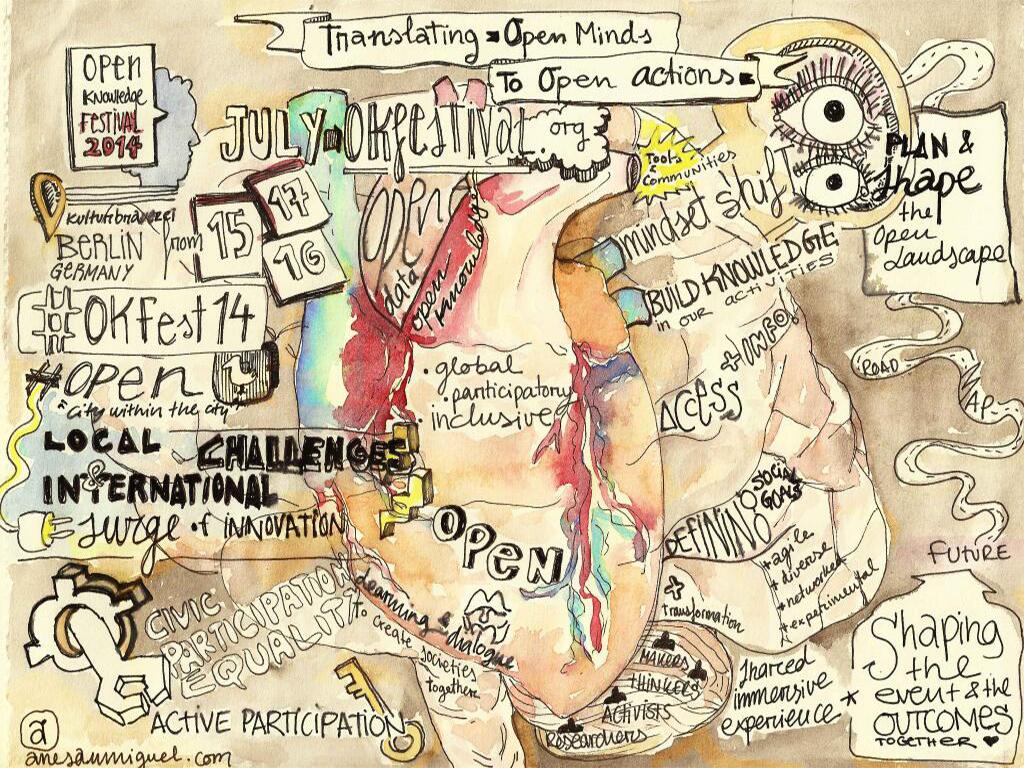 Translating = Open Minds
To Open actions
OPEN
Knowledge
FESTIVAL
2014
JULY = OKFestival.org
Tools &
Communities
mindset Shift
PLAN &
Shape
the
Open
Landscape
Kulturbrauerei
BERLIN
GERMANY
from
15
17
16
OPEN
data
open
knowledge
BUILD KNOWLEDGE
in our activities
#OKFest14
#OPEN
"City within the city"
• global
participatory
inclusive
ACCESS
+ INFO!
ROAD
LOCAL CHALLENGES
&
INTERNATIONAL
surge of INNOVATION
OPEN
DEFINING
SOCIAL
GOALS
+ agile
+ diverse
+ networked
+ experimental
+ transformation
FUTURE
CIVIC
PARTICIPATION
EQUALITY
Learning & dialogue
to create societies
together
MAKERS
THINKERS
ACTIVISTS
Researchers
Shared
immersive
experience *
Shaping
the
event & the
OUTCOMES
TOGETHER ♥
ACTIVE PARTICIPATION
a
anesanmiguel.com